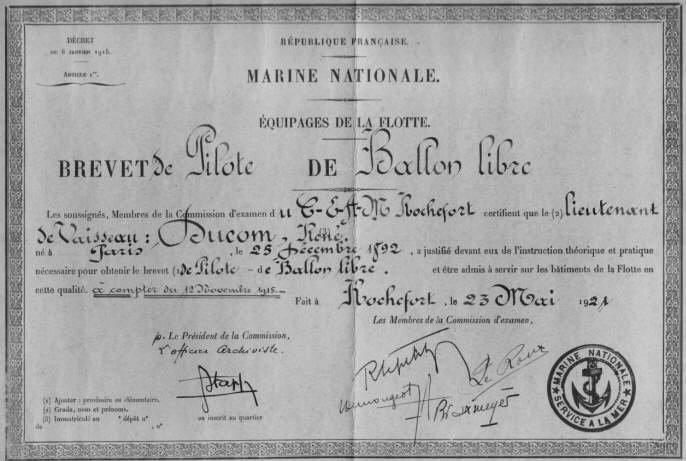 DÉCRET
DU 6 JANVIER 1915.
ARTICLE 1er.
RÉPUBLIQUE FRANÇAISE.
MARINE NATIONALE.
ÉQUIPAGES DE LA FLOTTE.
BREVET de Pilote DE Ballon libre
Les soussignés, Membres de la Commission d'examen du C-E-A-M Rochefort certifient que le (2) lieutenant
de Vaisseau: Ducom, René.
né à Paris, le 25 Décembre 1892, a justifié devant eux de l'instruction théorique et pratique
nécessaire pour obtenir le brevet (1 de Pilote - de Ballon libre. et être admis à servir sur les bâtiments de la Flotte en
cette qualité. à compter du 12 Novembre 1915.
Fait à Rochefort, le 23 Mai 1921
Les Membres de la Commission d'examen,
p. Le Président de la Commission,
L'officier Archiviste.
Le Roux
(1) Ajouter : provisoire ou élémentaire.
(2) Grade, nom et prénoms.
(3) Immatriculé au ° dépôt n° ou inscrit au quartier
de , n°
MARINE NATIONALE
SERVICE A LA MER